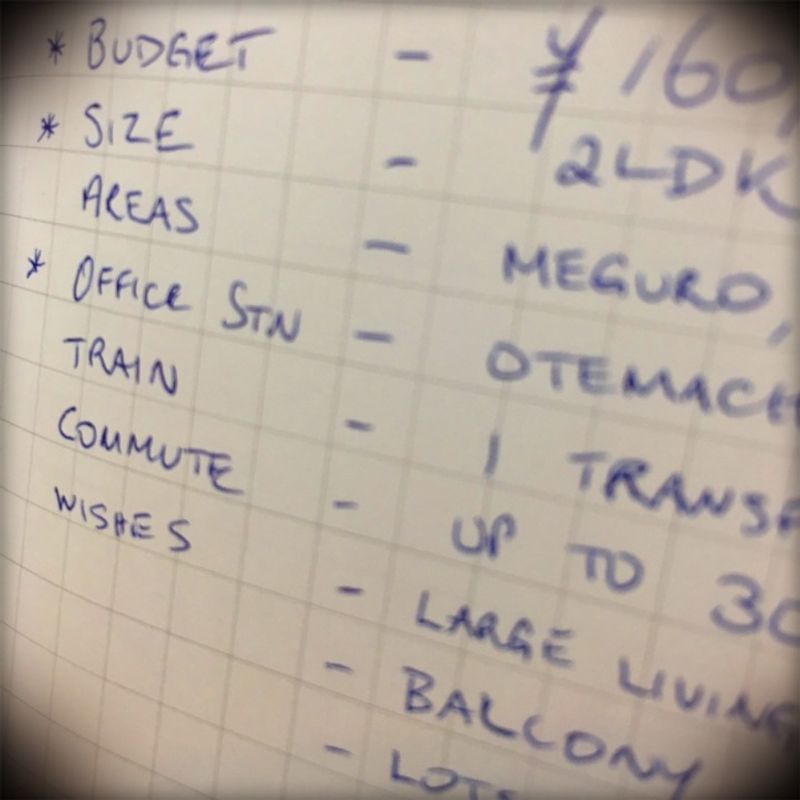 * BUDGET - ¥160,
* SIZE - 2LDK
AREAS - MEGURO,
* OFFICE STN - OTEMACH
TRAIN - 1 TRANSF
COMMUTE - UP TO 30
WISHES - LARGE LIVING
- BALCONY
- LOTS